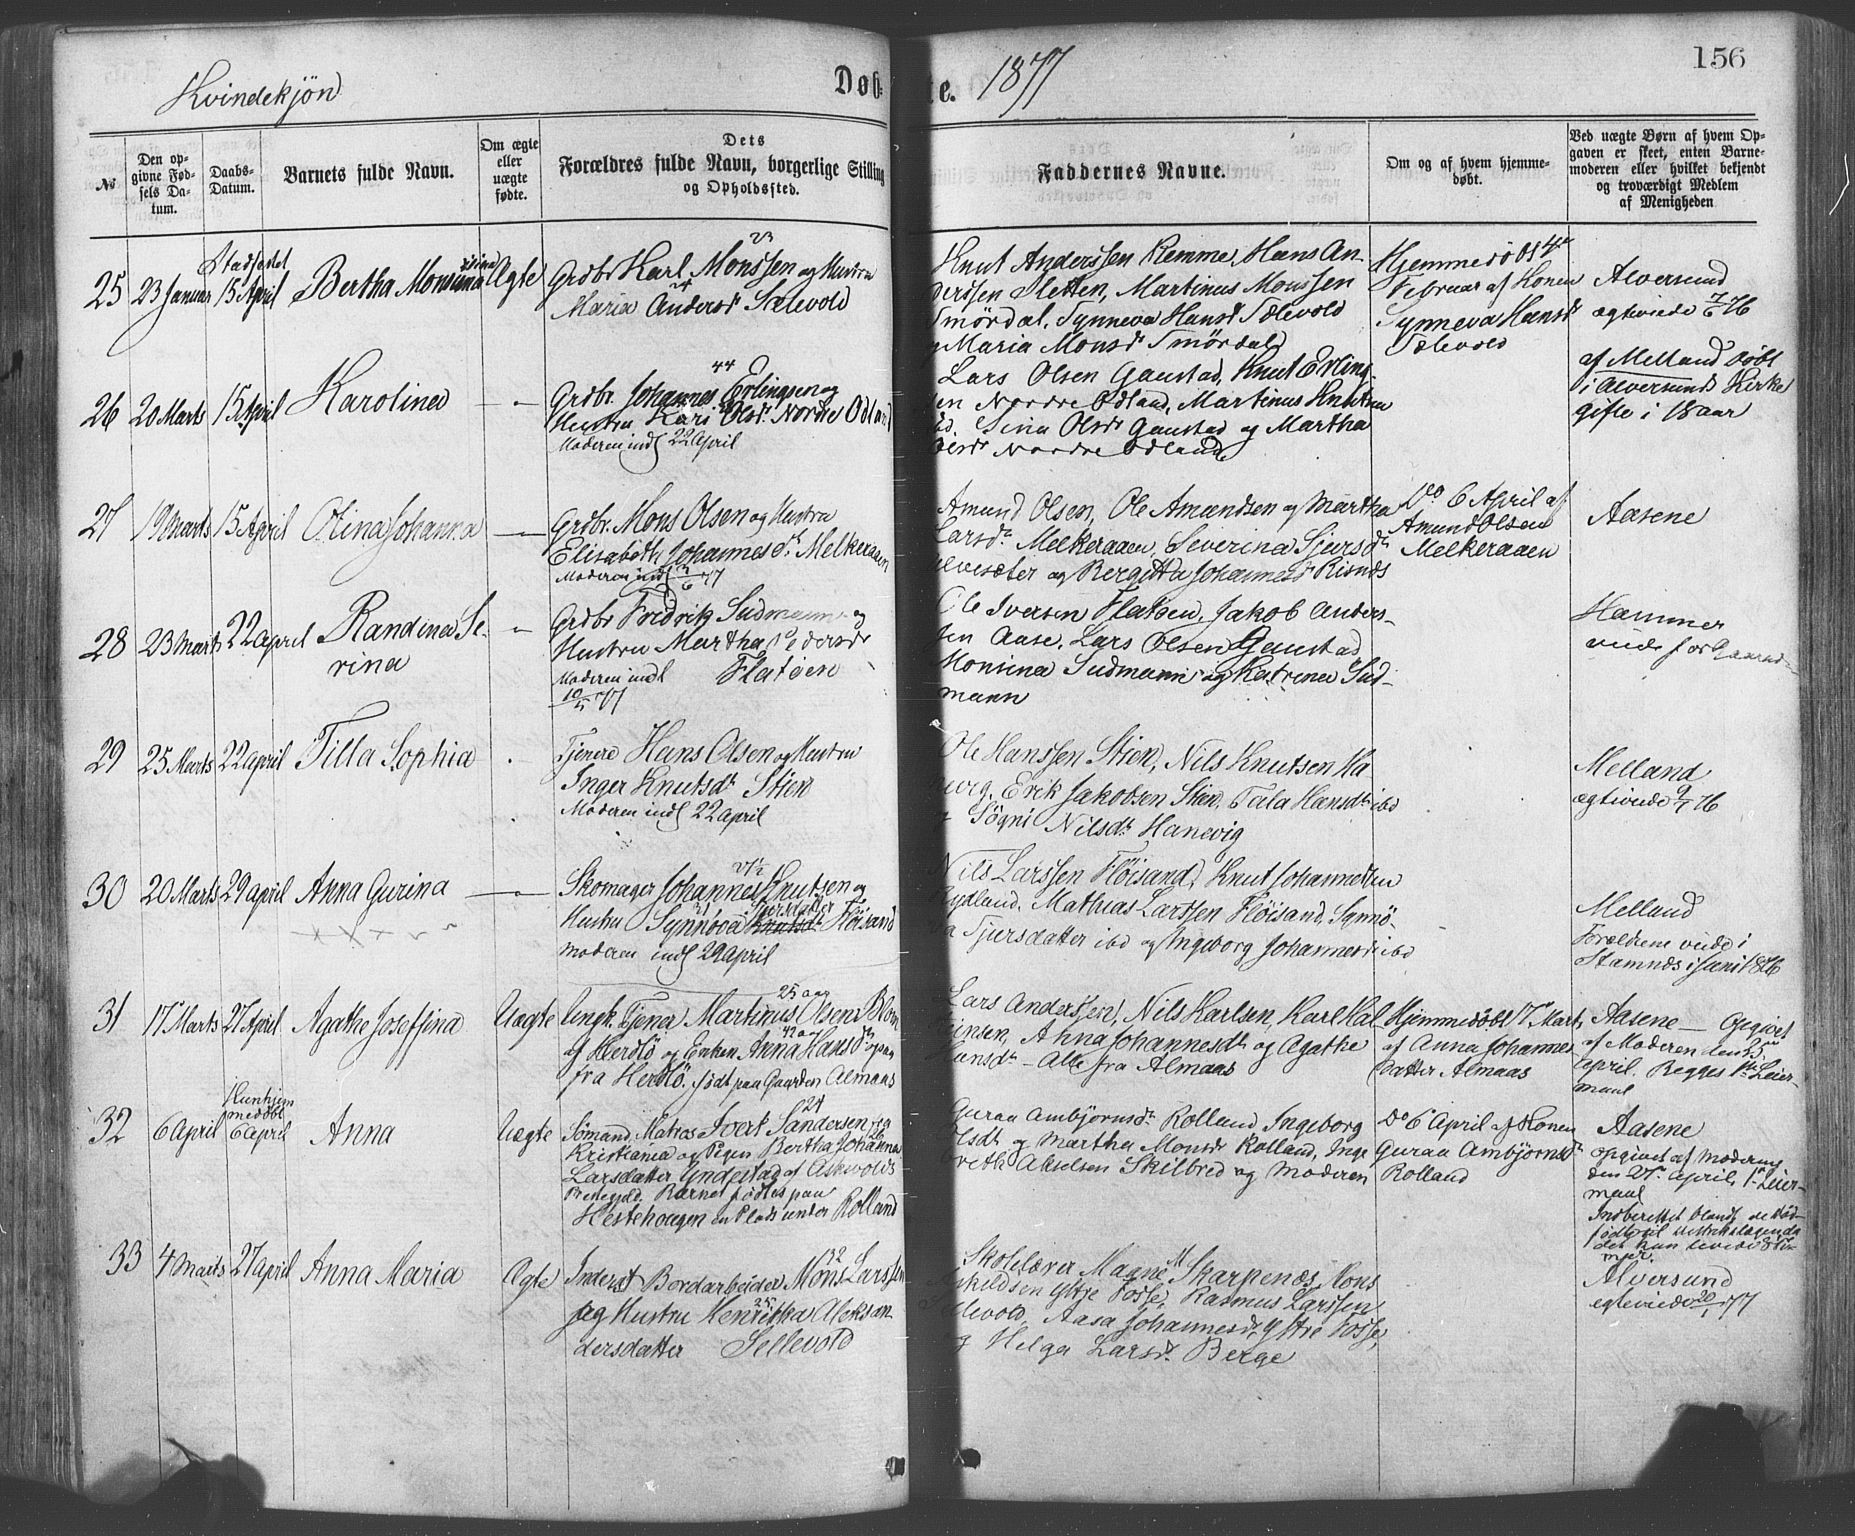 Kvindekjön
Døb= te. 1877
156
№
Den op-
givne Fød-
sels Da-
tum.
Daabs-
Datum.
Barnets fulde Navn.
Om ægte
eller
uægte
fødte.
Dets
Forældres fulde Navn, borgerlige Stilling
og Opholdssted.
Faddernes Navne.
Om og af hvem hjemme-
døbt.
Ved uægte Børn af hvem Op-
gaven er skeet, enten Barne-
moderen eller hvilket bekjendt
og troværdigt Medlem
af Menigheden
25
23 Januar
Stadfestet
15 April
Bertha Monsine
Ægte
23
Grdbr Karl Monssen og Hustru
24
Maria Andersd Sælevold
Knut Anderssen Remme, Hans An-
derssen Sletten, Martinus Monssen
Smördal, Synneva Hansd Sælevold
Maria Monsdr Smördal
Hjemmedöbt 4de
Februar af Konen
Synneva Hansdr
Sælevold
Alversund
ægteviede 7/6 76
26
20 Marts
15 April
Karolina
— " —
44
Grdbr. Johannes Erlingsen og
Hustru Kari Olsdr Nordre Odland
Moderen indl 22 April
Lars Olsen Gaustad, Knut Erling-
sen Nordre Odland, Martinus Knutsen
ibd. Sina Olsdr Gaustad og Martha
Olsdr Nordre Odland
af Melland döbt
i Alversunds Kirke
gifte i 18 aar
27
19 Marts
15 April
Olina Johanna
— " —
Grdbr. Mons Olsen og Hustru
Elisabeth Johannesdr. Melkeraaen
Moderen indl 3/6 77
Amund Olsen, Ole Amundsen og Martha
Larsdr Melkeraaen, Severina Sjursdr
og Bergitta Johannesdr Risnes
Do 6 April af
Amund Olsen
Melkeraaen
Aasene
28
23 Marts
22 April
Randina Se-
rina
"
Grdbr Fredrik Sudmann og
Hustru Martha Pedersdr
Moderen indl Flatöen
10/5 77
Ole Iversen Flatöen, Jakob Anders-
sen Aase, Lars Olsen Gaustad
Monsina Sudmann og Katrina Sud-
mann
Hammer
29
25 Marts
22 April
Tilla Sophia
Tjener Hans Olsen og Hustru
Inger Knutsdr Stien
Moderen indl 22 April
Ole Hanssen Stien, Nils Knutsen Ha
Erik Jakobsen Stien, Tala Hansdr ibd
Sögni Nilsdr Hanevig
Melland
ægteviede 9/7 76
30
20 Marts
29 April
Anna Gurina
— " —
27½
Skomager Johannes Knutsen og
31 Sjursdatter
Hustru Synnöva Knutsdr Flöisand
moderen indl 29 April
Nils Larssen Flöisand, Knut Johannessen
Rydland, Mathias Larssen Flöisand, Synnö-
va Sjursdatter ibd og Ingeborg Johannesdr ibd
Melland
Forældrene viede i
Stamnes i Juni 1876
31
17 Marts
27 April
Agathe Joseffina
Uægte
25 aar
Ungk. Tjener Martinus Olsen Blom
42 aar
af Herdlö og Enken Anna Hansdr
fra Herdlö. födt paa Gaarden Almaas
Lars Anderssen, Nils Karlsen, Karl Hal-
Anna Johannesdr og Agathe
Hansdr – Alle fra Almaas
Hjemmedöbt 17 Marts
af Anna Johannes-
datter Almaas
Aasene – Opgivet
af Moderen den 25
April. Begges 1ste Leier-
maal
32
6 April
Kun hjem
medöbt
6 April
Anna
Uægte
24
Sömand Matros Ivert Sandersen fra
26
Kristiania og Pigen Bertha Johanna
Larsdatter Yndestad af Askevolds
Præstegjeld. Barnet födtes paa
Hestehaugen en Plads under Rolland
Guraa Ambjörnsdr Rolland, Ingeborg
Olsdr og Martha Monsdr Rolland, Inge
breth Akselsen Skilbred og Moderen
Do 6 April af Konen
Guraa Ambjörnsdr
Rolland
Aasene
opgivet af Moderen
den 27 April, 1ste Leier-
maal
Indberettet blandt de död-
födte
det kun levede 8 Ti-
mer
33
4 Marts
27 April
Anna Maria
Ægte
32
Inderst Bordarbeider Mons Larssen
25
og Hustru Henrikka Aleksan
dersdatter Sellevold
Skolelærer Magne M Skarpenæs, Mons
Askildsen Ytre Fosse, Rasmus Larssen
Sellevold, Aasa Johannesdr Ytre Fosse,
og Helga Larsdr. Berge
Alversund
egteviede 20/1 77